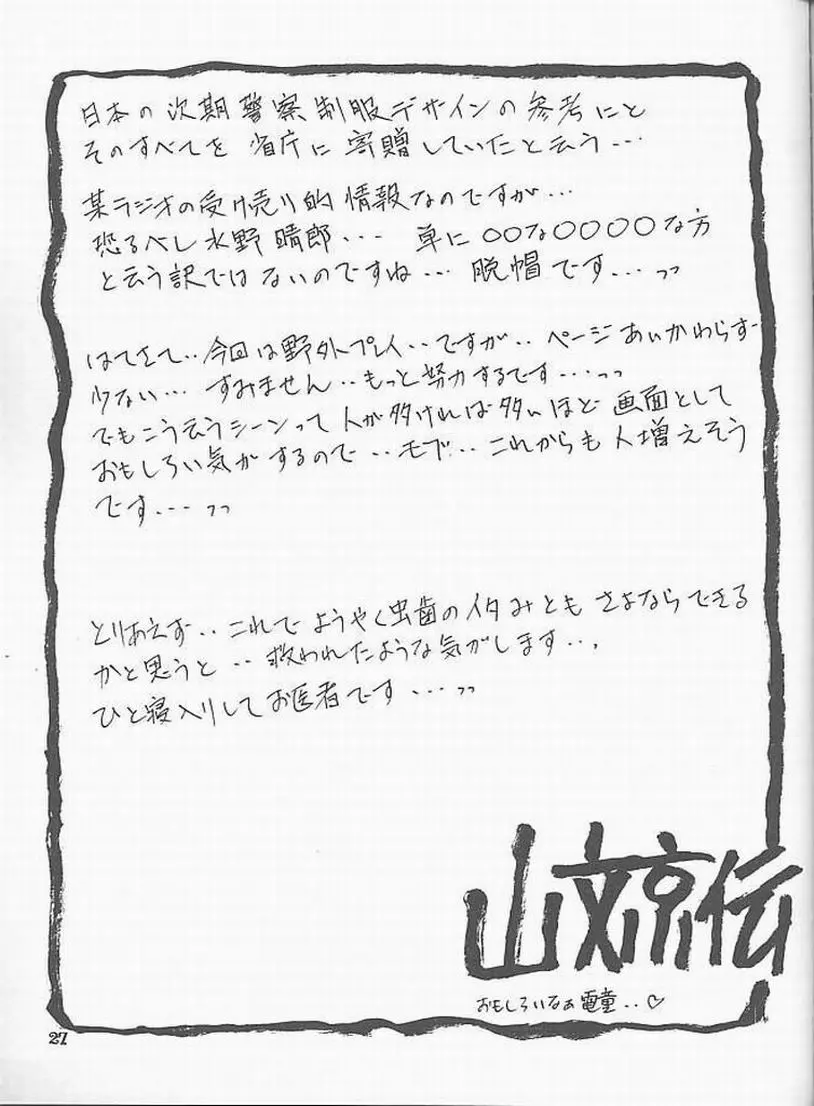 日本の次期警察制服デザインの参考にと
そのすべてを省庁に寄贈していたと云う…
某ラジオの受け売り的情報なのですが…
恐るべし水野晴郎… 単に〇〇な〇〇〇〇な方
と云う訳ではないのですね… 脱帽です…ッッ
はてさて‥今回は野外プレイ‥ですが‥ページあいかわらず
少ない… すみません‥もっと努力するです…ッッ
でもこう云うシーンって人が多ければ多いほど画面として
おもしろい気がするので‥モブ‥これからも人増えそう
です…ッッ
とりあえず‥これでようやく虫歯のイタみともさよならできる
かと思うと‥救われたような気がします…
ひと寝入りしてお医者です…ッッ
山文京伝
おもしろいなぁ電童‥♡
27